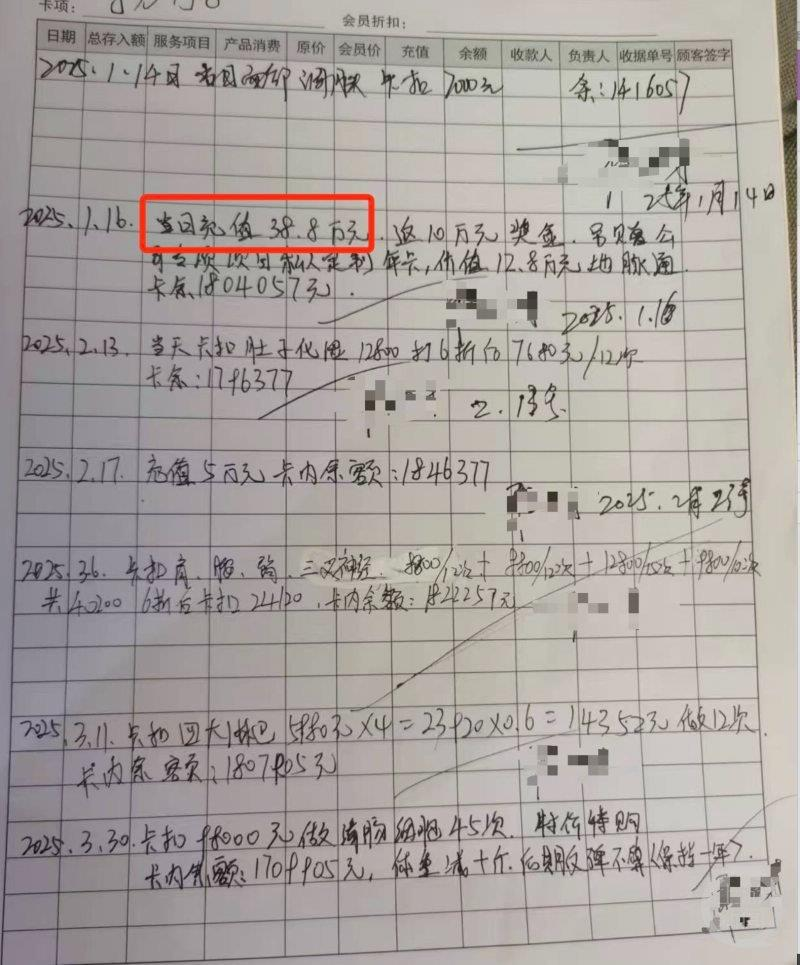 卡项:
会员折扣:
日期 总存入额 服务项目 产品消费 原价 会员价 充值 余额 收款人 负责人 收据单号 顾客签字
2025.1.14日 卡扣 7000元 余:1416057
25年1月14日
2025.1.16. 当日充值38.8万元.返10万元奖金.
年卡,价值12.8万元地脉通.
卡余1804057元.
2025.1.16
2025.2.13. 当天卡扣肚子化 12800打6折后7680元/12次
卡余:1796377
2.13
2025.2.17. 充值5万元卡内余额:1846377
2025.2月
2025.3.6. 卡扣肩、三叉神经. 9800/12次+12800/15次+9800/10次
共40200 6折后卡扣24120.卡内余额:1822257元
2025.3.11. 卡扣四大淋巴5980元×4=23920×0.6=14352元 做12次.
卡内余额:1807905元
2025.3.30.卡扣98000元做 45次. 特价特购
卡内余额:1709905元,体重减十斤.后期反弹不算(保持一年).